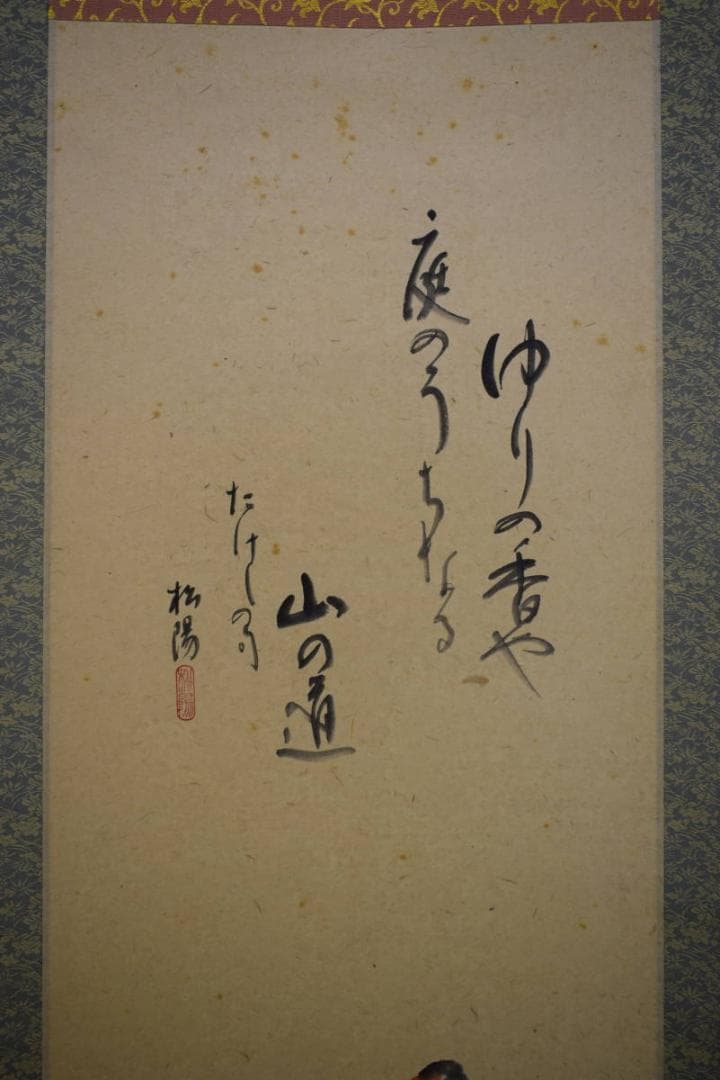 ゆりの香や
庭のうちなる
山の道
たけしの句
松陽